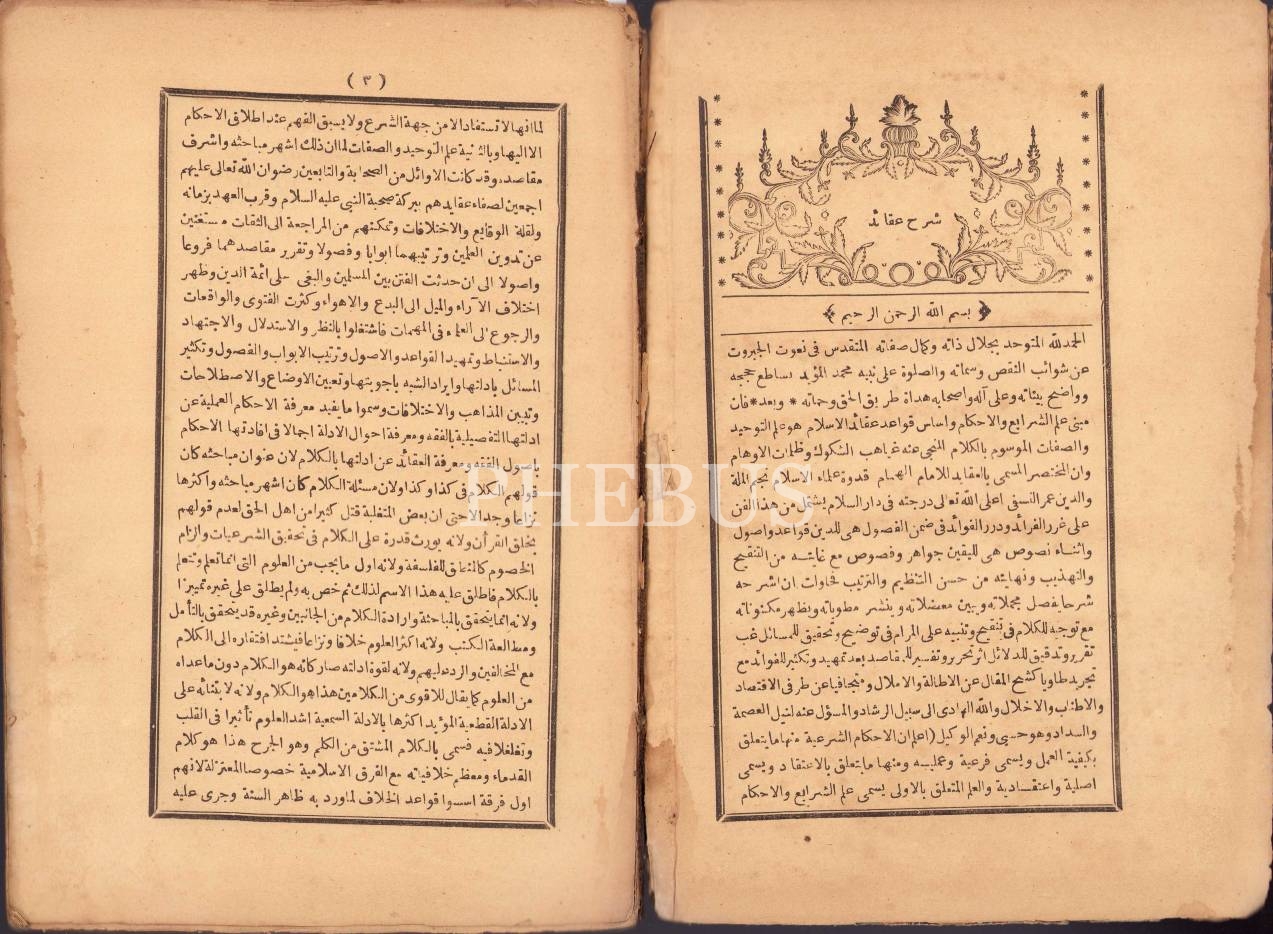 شرح عقائد
بسم الله الرحمن الرحيم
الحمدلله المتوحد بجلال ذاته وكمال صفاته المتقدس فى نعوت الجبروت
عن شوائب النقص وسماته والصلوة على نبيه محمد المؤيد بساطع حججه
وواضح بيناته وعلى آله واصحابه هداة طريق الحق وحماته * وبعد * فان
مبنى علم الشرايع والاحكام واساس قواعد عقائد الاسلام هو علم التوحيد
والصفات الموسوم بالكلام المنجى عنه غياهب الشكوك وظلمات الاوهام
وان المختصر المسمى بالعقايد للامام الهمام قدوة علماء الاسلام نجم الملة
والدين عمر النسفى اعلى الله تعالى درجته فى دار السلام يشتمل من هذا الفن
على غرر الفرائد ودرر الفوائد فى ضمن الفصول هى للدين قواعد واصول
واثناء نصوص هى لليقين جواهر وفصوص مع غايته من التنقيح
والتهذيب ونهايته من حسن التنظيم والترتيب فحاولت ان اشرحه
شرحا يفصل مجملاته ويبين معضلاته وينشر مطوياته ويظهر مكنوناته
مع توجيه للكلام فى تنقيح وتنبيه على المرام فى توضيح وتحقيق للمسائل غب
تقرير وتدقيق للدلائل اثر تحرير وتفسير للمقاصد بعد تمهيد وتكثير للفوائد مع
تجريد طاويا كشح المقال عن الاطالة والاملال ومتجافيا عن طرفى الاقتصاد
والاطناب والاخلال والله الهادى الى سبيل الرشاد والمسؤل عنه لنيل العصمة
والسداد وهو حسبى ونعم الوكيل (اعلم ان الاحكام الشرعية منها ما يتعلق
بكيفية العمل ويسمى فرعية وعملية ومنها ما يتعلق بالاعتقاد ويسمى
اصلية واعتقادية والعلم المتعلق بالاولى يسمى علم الشرايع والاحكام
( ٣ )
لما انها لا تستفاد الا من جهة الشرع ولا يسبق الفهم عند اطلاق الاحكام
الا اليها وبالثانية علم التوحيد والصفات لما ان ذلك اشهر مباحثه واشرف
مقاصده وقد كانت الاوائل من الصحابة والتابعين رضوان الله تعالى عليهم
اجمعين لصفاء عقايدهم ببركة صحبة النبى عليه السلام وقرب العهد بزمانه
ولقلة الوقايع والاختلافات وتمكنهم من المراجعة الى الثقات مستغنين
عن تدوين العلمين وترتيبهما ابوابا وفصولا وتقرير مقاصدهما فروعا
واصولا الى ان حدثت الفتن بين المسلمين والبغى على ائمة الدين وظهر
اختلاف الآراء والميل الى البدع والاهواء وكثرت الفتوى والواقعات
والرجوع الى العلماء فى المهمات فاشتغلوا بالنظر والاستدلال والاجتهاد
والاستنباط وتمهيد القواعد والاصول وترتيب الابواب والفصول وتكثير
المسائل بادلتها وايراد الشبه باجوبتها وتعيين الاوضاع والاصطلاحات
وتبيين المذاهب والاختلافات وسموا ما يفيد معرفة الاحكام العملية عن
ادلتها التفصيلية بالفقه ومعرفة احوال الادلة اجمالا فى افادتها الاحكام
باصول الفقه ومعرفة العقائد عن ادلتها بالكلام لان عنوان مباحثه كان
قولهم الكلام فى كذا وكذا ولان مسئلة الكلام كان اشهر مباحثه واكثرها
نزاعا وجدالا حتى ان بعض المتغلبة قتل كثيرا من اهل الحق لعدم قولهم
بخلق القرأن ولانه يورث قدرة على الكلام فى تحقيق الشرعيات والزام
الخصوم كالمنطق للفلسفة ولانه اول ما يجب من العلوم التى انما تعلم وتتعلم
بالكلام فاطلق عليه هذا الاسم لذلك ثم خص به ولم يطلق على غيره تمييزا
ولانه انما يتحقق بالمباحثة وارادة الكلام من الجانبين وغيره قد يتحقق بالتأمل
ومطالعة الكتب ولانه اكثر العلوم خلافا ونزاعا فيشتد افتقاره الى الكلام
مع المخالفين والرد عليهم ولانه لقوة ادلته صار كانه هو الكلام دون ما عداه
من العلوم كما يقال للاقوى من الكلامين هذا هو الكلام ولانه لابتنائه على
الادلة القطعية المؤيد اكثرها بالادلة السمعية اشد العلوم تأثيرا فى القلب
وتغلغلا فيه فسمى بالكلام المشتق من الكلم وهو الجرح هذا هو كلام
القدماء ومعظم خلافياته مع الفرق الاسلامية خصوصا المعتزلة لانهم
اول فرقة اسسوا قواعد الخلاف لما ورد به ظاهر السنة وجرى عليه
PHEBUS